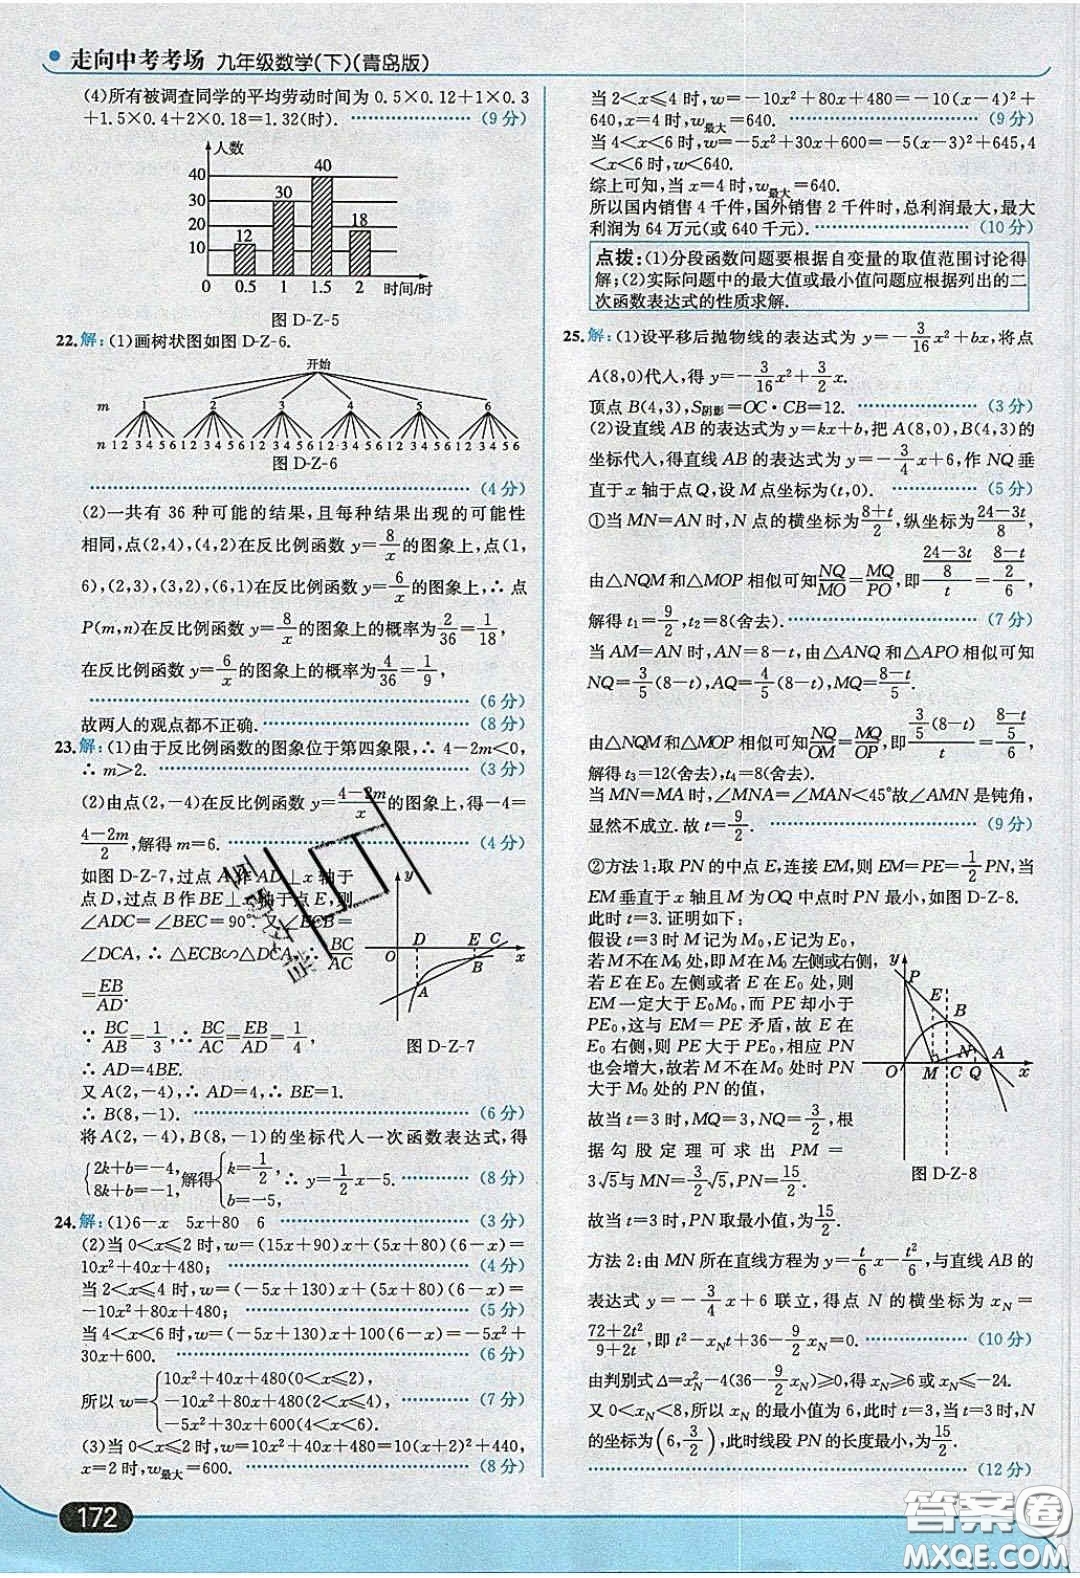 走向中考考场 九年级数学(下)(青岛版)
(4)所有被调查同学的平均劳动时间为 0.5×0.12+1×0.3
+1.5×0.4+2×0.18=1.32(时). (9分)
人数
40
30
20
10
12
30
40
18
0 0.5 1 1.5 2 时间/时
图 D-Z-5
22.解:(1)画树状图如图 D-Z-6.
开始
m 1 2 3 4 5 6
n 1 2 3 4 5 6 1 2 3 4 5 6 1 2 3 4 5 6 1 2 3 4 5 6 1 2 3 4 5 6 1 2 3 4 5 6
图 D-Z-6
(4分)
(2)一共有 36 种可能的结果,且每种结果出现的可能性
相同,点(2,4),(4,2)在反比例函数 y=8/x 的图象上,点(1,
6),(2,3),(3,2),(6,1)在反比例函数 y=6/x 的图象上,∴点
P(m,n)在反比例函数 y=8/x 的图象上的概率为 2/36=1/18,
在反比例函数 y=6/x 的图象上的概率为 4/36=1/9,
(6分)
故两人的观点都不正确. (8分)
23.解:(1)由于反比例函数的图象位于第四象限,∴4-2m<0,
∴m>2. (3分)
(2)由点(2,-4)在反比例函数 y=(4-2m)/x 的图象上,得-4=
(4-2m)/2,解得 m=6. (4分)
如图 D-Z-7,过点 A 作 AD⊥x 轴于
点 D,过点 B 作 BE⊥x 轴于点 E,则
∠ADC=∠BEC=90°.又∠ECB=
∠DCA,∴△ECB∽△DCA,∴BC/AC
=EB/AD.
∵BC/AB=1/3,∴BC/AC=EB/AD=1/4,
∴AD=4BE.
又 A(2,-4),∴AD=4,∴BE=1.
∴B(8,-1). (6分)
y
O
D
E
C
x
B
A
图 D-Z-7
将 A(2,-4),B(8,-1)的坐标代人一次函数表达式,得
{2k+b=-4, 8k+b=-1, 解得{k=1/2, b=-5, ∴y=1/2x-5. (8分)
24.解:(1)6-x 5x+80 6 (3分)
(2)当 0<x≤2 时,w=(15x+90)x+(5x+80)(6-x)=
10x²+40x+480; (4分)
当 2<x≤4 时,w=(-5x+130)x+(5x+80)(6-x)=
-10x²+80x+480; (5分)
当 4<x<6 时,w=(-5x+130)x+120(6-x)=-5x²+
30x+600. (6分)
所以 w={10x²+40x+480(0<x≤2), -10x²+80x+480(2<x≤4), -5x²+30x+600(4<x<6). (7分)
(3)当 0<x≤2 时,w=10x²+40x+480=10(x+2)²+440,
x=2 时,w最大=600. (8分)
172
当 2<x≤4 时,w=-10x²+80x+480=-10(x-4)²+
640,x=4 时,w最大=640. (9分)
当 4<x<6 时,w=-5x²+30x+600=-5(x-3)²+645,4
<x<6 时,w<640.
综上可知,当 x=4 时,w最大=640.
所以国内销售 4 千件,国外销售 2 千件时,总利润最大,最大
利润为 64 万元(或 640 千元). (10分)
点拨:(1)分段函数问题要根据自变量的取值范围讨论得
解;(2)实际问题中的最大值或最小值问题应根据列出的二
次函数表达式的性质求解.
25.解:(1)设平移后抛物线的表达式为 y=-3/16x²+bx,将点
A(8,0)代人,得 y=-3/16x²+3/2x.
顶点 B(4,3),S阴影=OC·CB=12. (3分)
(2)设直线 AB 的表达式为 y=kx+b,把 A(8,0),B(4,3)的
坐标代人,得直线 AB 的表达式为 y=-3/4x+6,作 NQ 垂
直于 x 轴于点 Q,设 M 点坐标为(t,0). (5分)
①当 MN=AN 时,N 点的横坐标为(8+t)/2,纵坐标为(24-3t)/8,
由△NQM 和△MOP 相似可知 NQ/MO=MQ/PO,即((24-3t)/8)/t=((8-t)/2)/6,
解得 t₁=9/2,t₂=8(舍去). (7分)
当 AM=AN 时,AN=8-t,由△ANQ 和△APO 相似可知
NQ=3/5(8-t),AQ=4/5(8-t),MQ=(8-t)/5.
由△NQM 和△MOP 相似可知 NQ/OM=MQ/OP,即(3/5(8-t))/t=((8-t)/5)/6,
解得 t₃=12(舍去),t₄=8(舍去).
当 MN=MA 时,∠MNA=∠MAN<45°故∠AMN 是钝角,
显然不成立.故 t=9/2. (9分)
②方法 1:取 PN 的中点 E,连接 EM,则 EM=PE=1/2PN,当
EM 垂直于 x 轴且 M 为 OQ 中点时 PN 最小,如图 D-Z-8.
此时 t=3.证明如下:
假设 t=3 时 M 记为 M₀,E 记为 E₀.
若 M 不在 M₀ 处,即 M 在 M₀ 左侧或右侧,
若 E 在 E₀ 左侧或者 E 在 E₀ 处,则
EM 一定大于 E₀M₀,而 PE 却小于
PE₀,这与 EM=PE 矛盾,故 E 在
E₀ 右侧,则 PE 大于 PE₀,相应 PN
也会增大,故若 M 不在 M₀ 处时 PN
大于 M₀ 处的 PN 的值,
故当 t=3 时,MQ=3,NQ=3/2,根
据勾股定理可求出 PM=
3√5与 MN=3/2√5,PN=15/2.
y
P
E
B
N
A
O
M
C
Q
x
图 D-Z-8
故当 t=3 时,PN 取最小值,为15/2.
方法 2:由 MN 所在直线方程为 y=t/6x-t²/6,与直线 AB 的
表达式 y=-3/4x+6 联立,得点 N 的横坐标为 xN=
(72+2t²)/(9+2t),即 t²-xNt+36-9/2xN=0. (10分)
由判别式 Δ=x²N-4(36-9/2xN)≥0,得 xN≥6 或 xN≤-24.
又 0<xN<8,所以 xN 的最小值为 6,此时 t=3,当 t=3 时,N
的坐标为(6,3/2),此时线段 PN 的长度最小,为15/2.
(12分)
答案圈
MXQE.COM